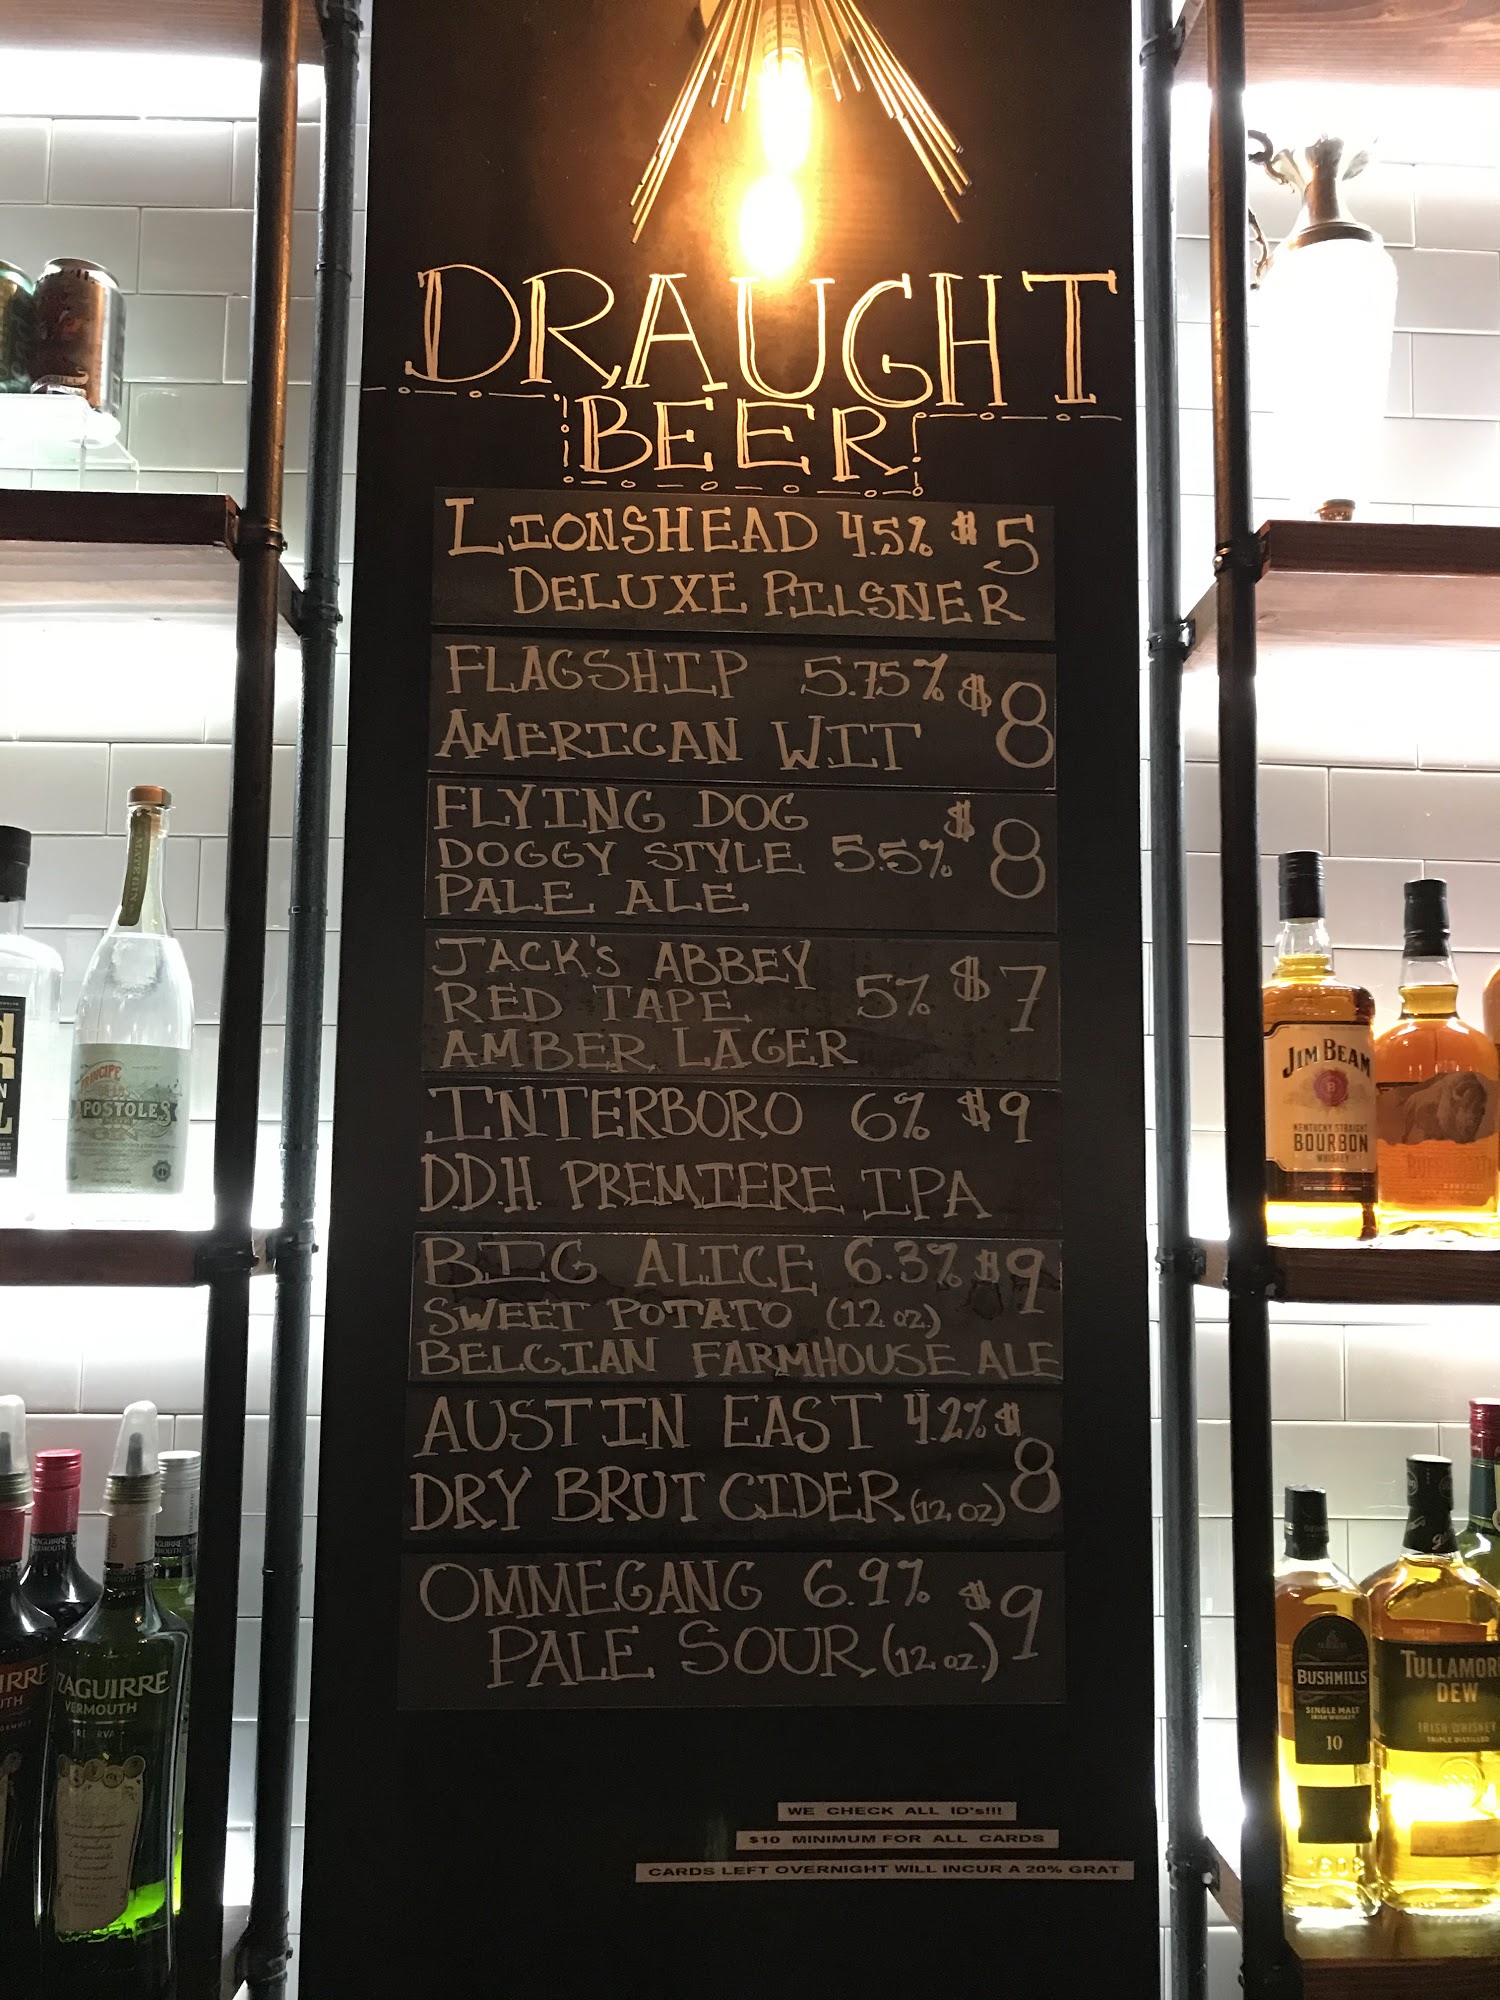 DRAUGHT
BEER
LIONSHEAD 4.5% $5
DELUXE PILSNER
FLAGSHIP 5.75% $8
AMERICAN WIT
FLYING DOG $8
DOGGY STYLE 5.5%
PALE ALE
JACK'S ABBEY
RED TAPE 5% $7
AMBER LAGER
INTERBORO 6% $9
D.D.H. PREMIERE IPA
BIG ALICE 6.3% $9
SWEET POTATO (12 oz.)
BELGIAN FARMHOUSE ALE
AUSTIN EAST 4.2% $8
DRY BRUT CIDER (12 oz)
OMMEGANG 6.9% $9
PALE SOUR (12 oz.)
WE CHECK ALL ID's!!!
$10 MINIMUM FOR ALL CARDS
CARDS LEFT OVERNIGHT WILL INCUR A 20% GRAT
PRINCIPE
APOSTOLES
GIN
ZAGUIRRE
VERMOUTH
RESERVA
JIM BEAM
KENTUCKY STRAIGHT
BOURBON
WHISKEY
BUSHMILLS
SINGLE MALT
IRISH WHISKEY
10
1608
TULLAMOR
DEW
IRISH WHISKEY
TRIPLE DISTILLED